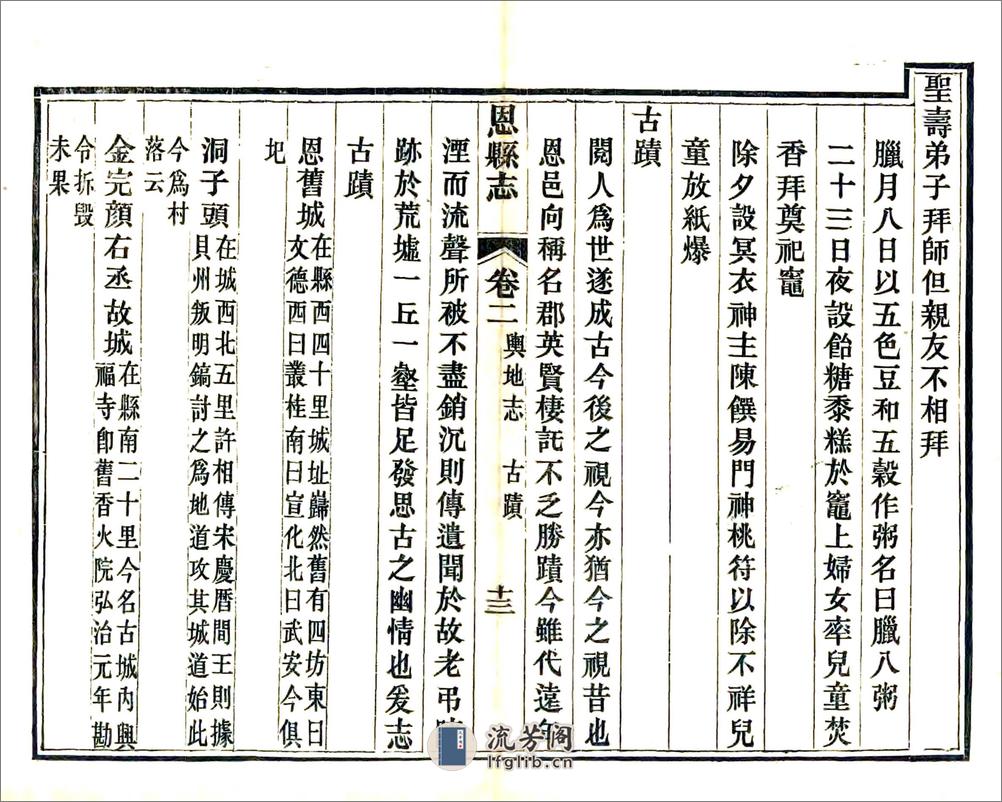 聖壽弟子拜師但親友不相拜
臘月八日以五色豆和五穀作粥名曰臘八粥
二十三日夜設飴糖黍糕於竈上婦女率兒童焚
香拜奠祀竈
除夕設冥衣神主陳饌易門神桃符以除不祥兒
童放紙爆
古蹟
閱人爲世遂成古今後之視今亦猶今之視昔也
恩邑向稱名郡英賢棲託不乏勝蹟今雖代遠年
恩縣志
卷二
輿地志
古蹟
十三
湮而流聲所被不盡銷沉則傳遺聞於故老弔
跡於荒墟一丘一壑皆足發思古之幽情也爰志
古蹟
恩舊城
在縣西四十里城址巋然舊有四坊東曰
文德西曰叢桂南曰宣化北曰武安今俱
圯
洞子頭
在城西北五里許相傳宋慶曆間王則據
貝州叛明鎬討之爲地道攻其城道始此
今爲村
落云
金完顔右丞故城
在縣南二十里今名古城內興
福寺即舊香火院弘治元年勘
令拆毀
未果
流芳阁
lfglib.cn